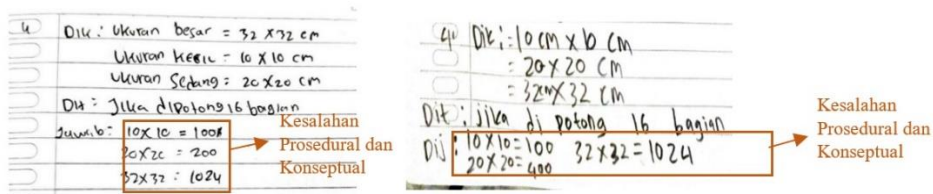 4 Dik : Ukuran besar = 32 x 32 cm
Ukuran Kecil = 10 x 10 cm
Ukuran Sedang = 20 x 20 cm
Dit : Jika dipotong 16 bagian
Jawab : 10 x 10 = 100
20 x 20 = 200
32 x 32 = 1024
Kesalahan
Prosedural dan
Konseptual
4. Dik : = 10 cm x 10 cm
= 20 x 20 cm
= 32 cm x 32 cm
Dit : Jika di potong 16 bagian
Dij : 10 x 10 = 100 32 x 32 = 1024
20 x 20 = 400
Kesalahan
Prosedural dan
Konseptual